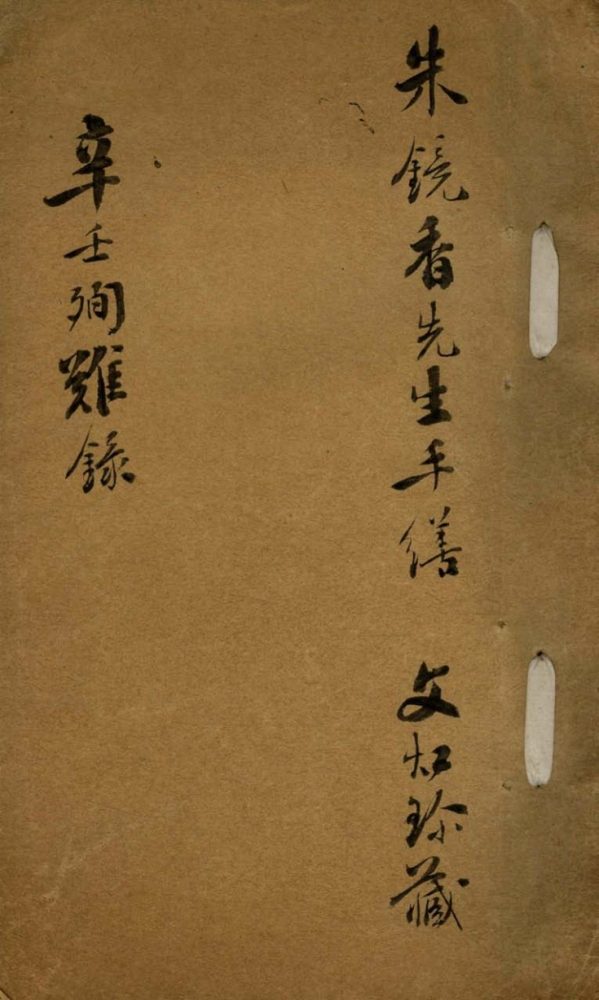 朱鏡香先生手繕 文炳珍藏
辛壬殉難錄